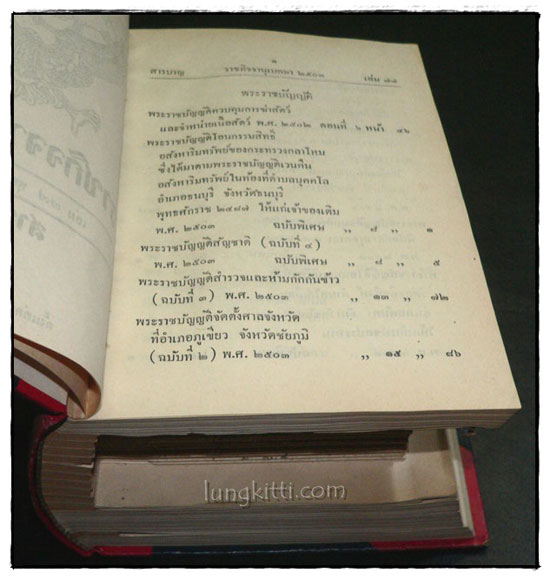 ๑
สารบาญ ราชกิจจานุเบกษา ๒๕๐๓ เล่ม ๗๗
พระราชบัญญัติ
พระราชบัญญัติควบคุมการฆ่าสัตว์
และจำหน่ายเนื้อสัตว์ พ.ศ. ๒๕๐๒ ตอนที่ ๖ หน้า ๔๖
พระราชบัญญัติโอนกรรมสิทธิ์
อสังหาริมทรัพย์ของกระทรวงกลาโหม
ซึ่งได้มาตามพระราชบัญญัติเวนคืน
อสังหาริมทรัพย์ในท้องที่ตำบลบุคคโล
อำเภอธนบุรี จังหวัดธนบุรี
พุทธศักราช ๒๔๘๗ ให้แก่เจ้าของเดิม
พ.ศ. ๒๕๐๓ ฉบับพิเศษ ,, ๘ ,, ๑
พระราชบัญญัติสัญชาติ (ฉบับที่ ๔)
พ.ศ. ๒๕๐๓ ฉบับพิเศษ ,, ๘ ,, ๕
พระราชบัญญัติสำรวจและห้ามกักกันข้าว
(ฉบับที่ ๓) พ.ศ. ๒๕๐๓ ,, ๑๓ ,, ๗๒
พระราชบัญญัติจัดตั้งศาลจังหวัด
ที่อำเภอภูเขียว จังหวัดชัยภูมิ
(ฉบับที่ ๒) พ.ศ. ๒๕๐๓ ,, ๑๕ ,, ๘๖
lungkitti.com